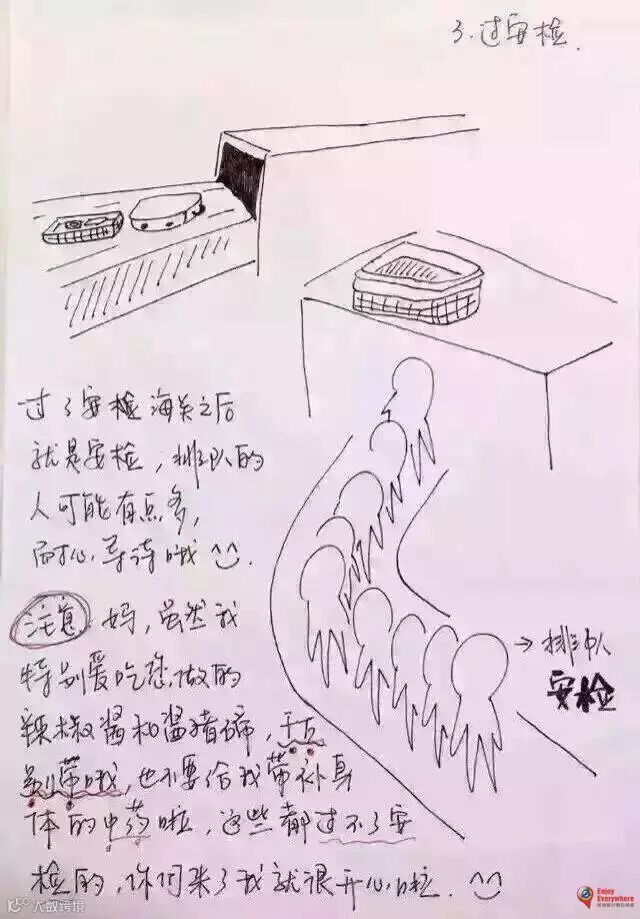 3.过安检.
过了安检海关之后
就是安检，排队的
人可能有点多，
耐心等待哦^_^.
→排队
安检
注意 妈，虽然我
特别爱吃您做的
辣椒酱和酱猪蹄，千万
别带哦，也不要给我带补身
体的中药啦，这些都过不了安
检的，你们来了我就很开心啦.^_^
Enjoy
Everywhere
大数跨境